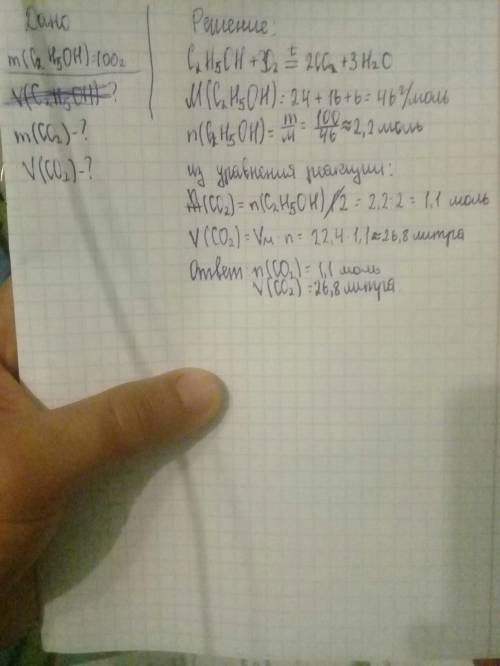 Дано
m(C₂H₅OH)=100г
V(C₂H₅OH)-?
m(CO₂)-?
V(CO₂)-?
Решение:
C₂H₅OH+3O₂ =ᵗ 2CO₂+3H₂O
M(C₂H₅OH)=24+16+6=46г/моль
n(C₂H₅OH)= m/M = 100/46 ≈2,2 моль
из уравнения реакции:
n(CO₂)=n(C₂H₅OH)/2 = 2,2:2 = 1,1 моль
V(CO₂)=Vм·n = 22,4·1,1≈26,8 литра
Ответ: n(CO₂)=1,1 моль
V(CO₂)=26,8 литра